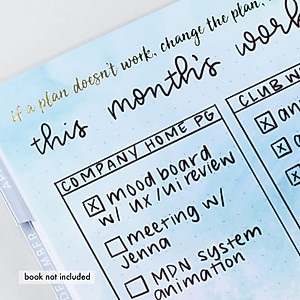 if a plan doesn't work, change the plan,
this month's work
COMPANY HOME PG
CLUB W
mood board
w/ ux/ui review
meeting w/
Jenna
MDN system
animation
an
an
DECEMBER
book not included